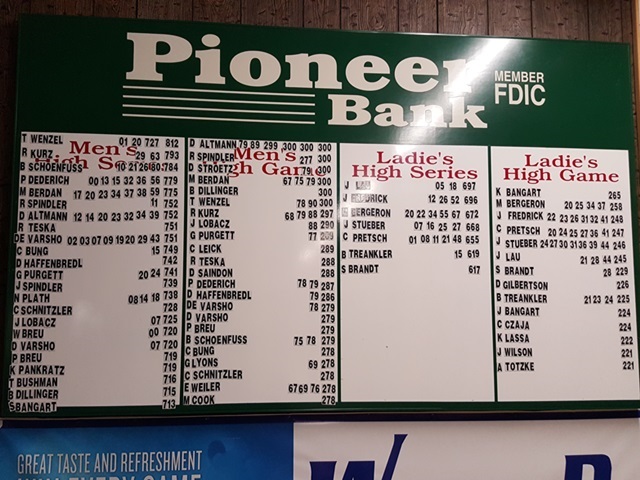 Pioneer
Bank
MEMBER
FDIC
Men's
High Series
T WENZEL 01 20 727 812
R KURZ 29 63 793
B SCHOENFUSS 10 21 26 80 784
P DEDERICH 00 13 15 32 36 56 779
M BERDAN 17 20 23 34 37 38 59 775
R SPINDLER 11 752
D ALTMANN 12 14 20 23 32 34 39 752
R TESKA 751
DE VARSHO 02 03 07 09 19 20 29 43 751
C BUNG 15 749
D HAFFENBREDL 742
G PURGETT 20 24 741
J SPINDLER 739
N PLATH 08 14 18 738
C SCHNITZER 728
J LOBACZ 07 725
W BREU 00 720
D VARSHO 07 720
P BREU 719
K PANKRATZ 719
T BUSHMAN 716
B DILLINGER 715
S BANGART 713
Men's
High Game
D ALTMANN 79 89 299 300 300 300
R SPINDLER 277 300
D STROETZ 79 300
M BERDAN 67 75 79 300
B DILLINGER 300
T WENZEL 78 90 300
R KURZ 68 79 88 297
J LOBACZ 88 290
G PURGETT 77 289
C LEICK 289
R TESKA 288
D SAINDON 288
P DEDERICH 78 79 287
D HAFFENBREDL 79 286
DE VARSHO 78 279
D VARSHO 279
P BREU 279
B SCHOENFUSS 75 78 279
C BUNG 278
G LYONS 69 278
C SCHNITZER 278
E WEILER 67 69 76 278
M COOK 278
Ladie's
High Series
J 05 18 697
J FREDRICK 12 26 52 696
BERGERON 20 22 34 55 67 672
J STUEBER 07 16 25 27 668
C PRETSCH 01 08 11 21 48 655
B TREANKLER 15 619
S BRANDT 617
Ladie's
High Game
K BANGART 265
M BERGERON 20 25 34 37 258
J FREDRICK 22 23 26 31 32 41 248
C PRETSCH 20 24 25 27 36 41 247
J STUEBER 24 27 30 31 36 39 44 246
J LAU 21 28 44 245
S BRANDT 28 229
D GILBERTSON 226
B TREANKLER 21 23 24 225
J BANGART 224
C CZAJA 224
K LASSA 222
J WILSON 221
A TOTZKE 221
GREAT TASTE AND REFRESHMENT